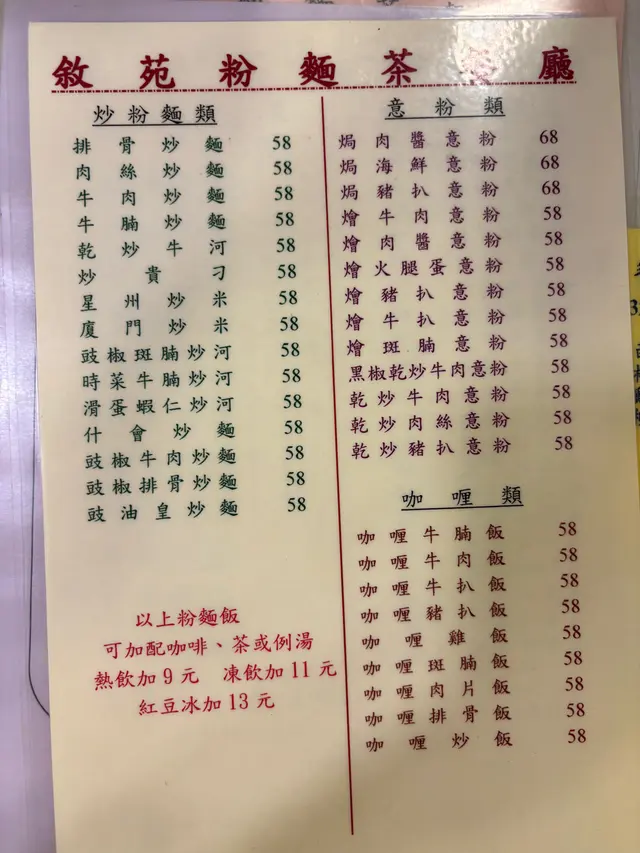 敘苑粉麵茶餐廳
炒粉麵類
排骨炒麵 58
肉絲炒麵 58
牛肉炒麵 58
牛腩炒麵 58
乾炒牛河 58
炒貴刁 58
星州炒米 58
廈門炒米 58
豉椒斑腩炒河 58
時菜牛腩炒河 58
滑蛋蝦仁炒河 58
什會炒麵 58
豉椒牛肉炒麵 58
豉椒排骨炒麵 58
豉油皇炒麵 58
以上粉麵飯
可加配咖啡、茶或例湯
熱飲加9元 凍飲加11元
紅豆冰加13元
意粉類
焗肉醬意粉 68
焗海鮮意粉 68
焗豬扒意粉 68
燴牛肉意粉 58
燴肉醬意粉 58
燴火腿蛋意粉 58
燴豬扒意粉 58
燴牛扒意粉 58
燴斑腩意粉 58
黑椒乾炒牛肉意粉 58
乾炒牛肉意粉 58
乾炒肉絲意粉 58
乾炒豬扒意粉 58
咖喱類
咖喱牛腩飯 58
咖喱牛肉飯 58
咖喱牛扒飯 58
咖喱豬扒飯 58
咖喱雞飯 58
咖喱斑腩飯 58
咖喱肉片飯 58
咖喱排骨飯 58
咖喱炒飯 58